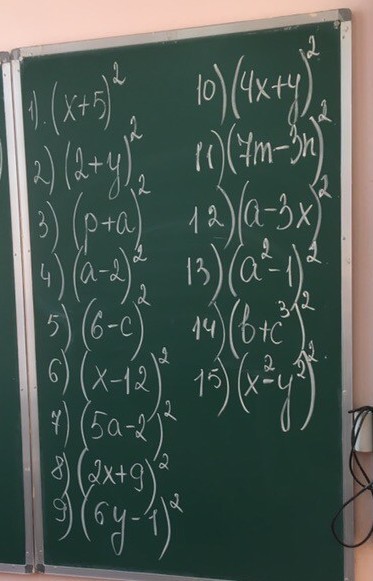 1). (x+5)²
2) (2+y)²
3) (p+a)²
4) (a-2)²
5) (6-c)²
6) (x-12)²
7) (5a-2)²
8) (2x+9)²
9) (6y-1)²
10) (4x+y)²
11) (7m-3n)²
12) (a-3x)²
13) (a²-1)²
14) (b+c³)²
15) (x²-y²)²